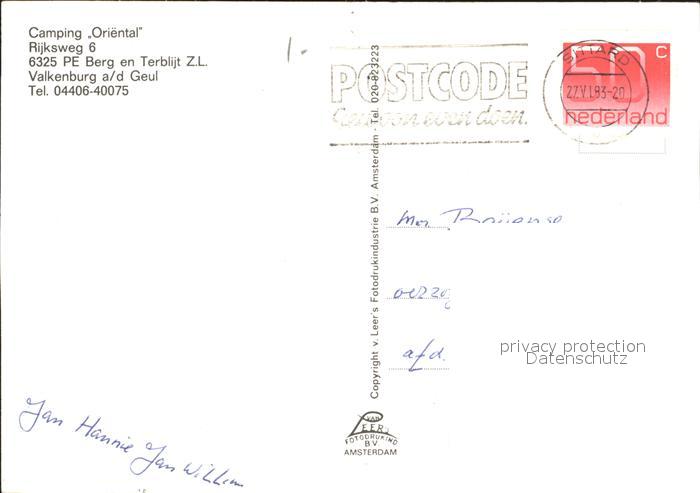 Camping „Oriëntal"
Rijksweg 6
6325 PE Berg en Terblijt Z.L.
Valkenburg a/d Geul
Tel. 04406-40075
1-
POSTCODE
Gewoon even doen.
SITTARD
27.VI.83-20
50 C
nederland
Copyright v. Leer's Fotodrukindustrie B.V. Amsterdam - Tel. 020-823223
afd.
privacy protection
Datenschutz
VAN
LEER'S
FOTODRUKIND
B.V.
AMSTERDAM
Jan Hannie Jan Willem